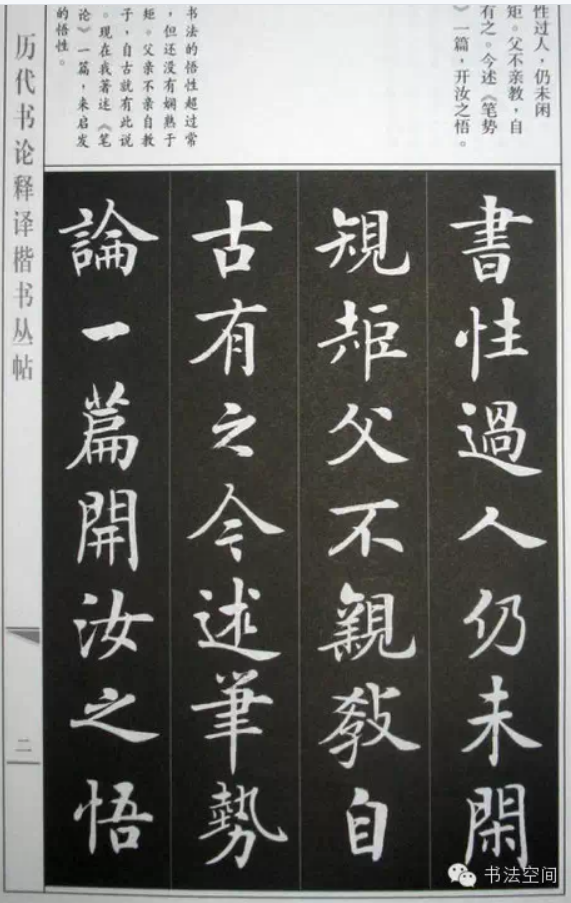 性过人，仍未闲
矩。父不亲教，自
有之。今述《笔势
》一篇，开汝之悟。
书法的悟性超过常
，但还没有娴熟于
矩。父亲不亲自教
子，自古就有此说
。现在我著述《笔
论》一篇，来启发
的悟性。
書性過人仍未閑
規矩父不親教自
古有之今述筆勢
論一篇開汝之悟
历代书论释译楷书丛帖
二
书法空间